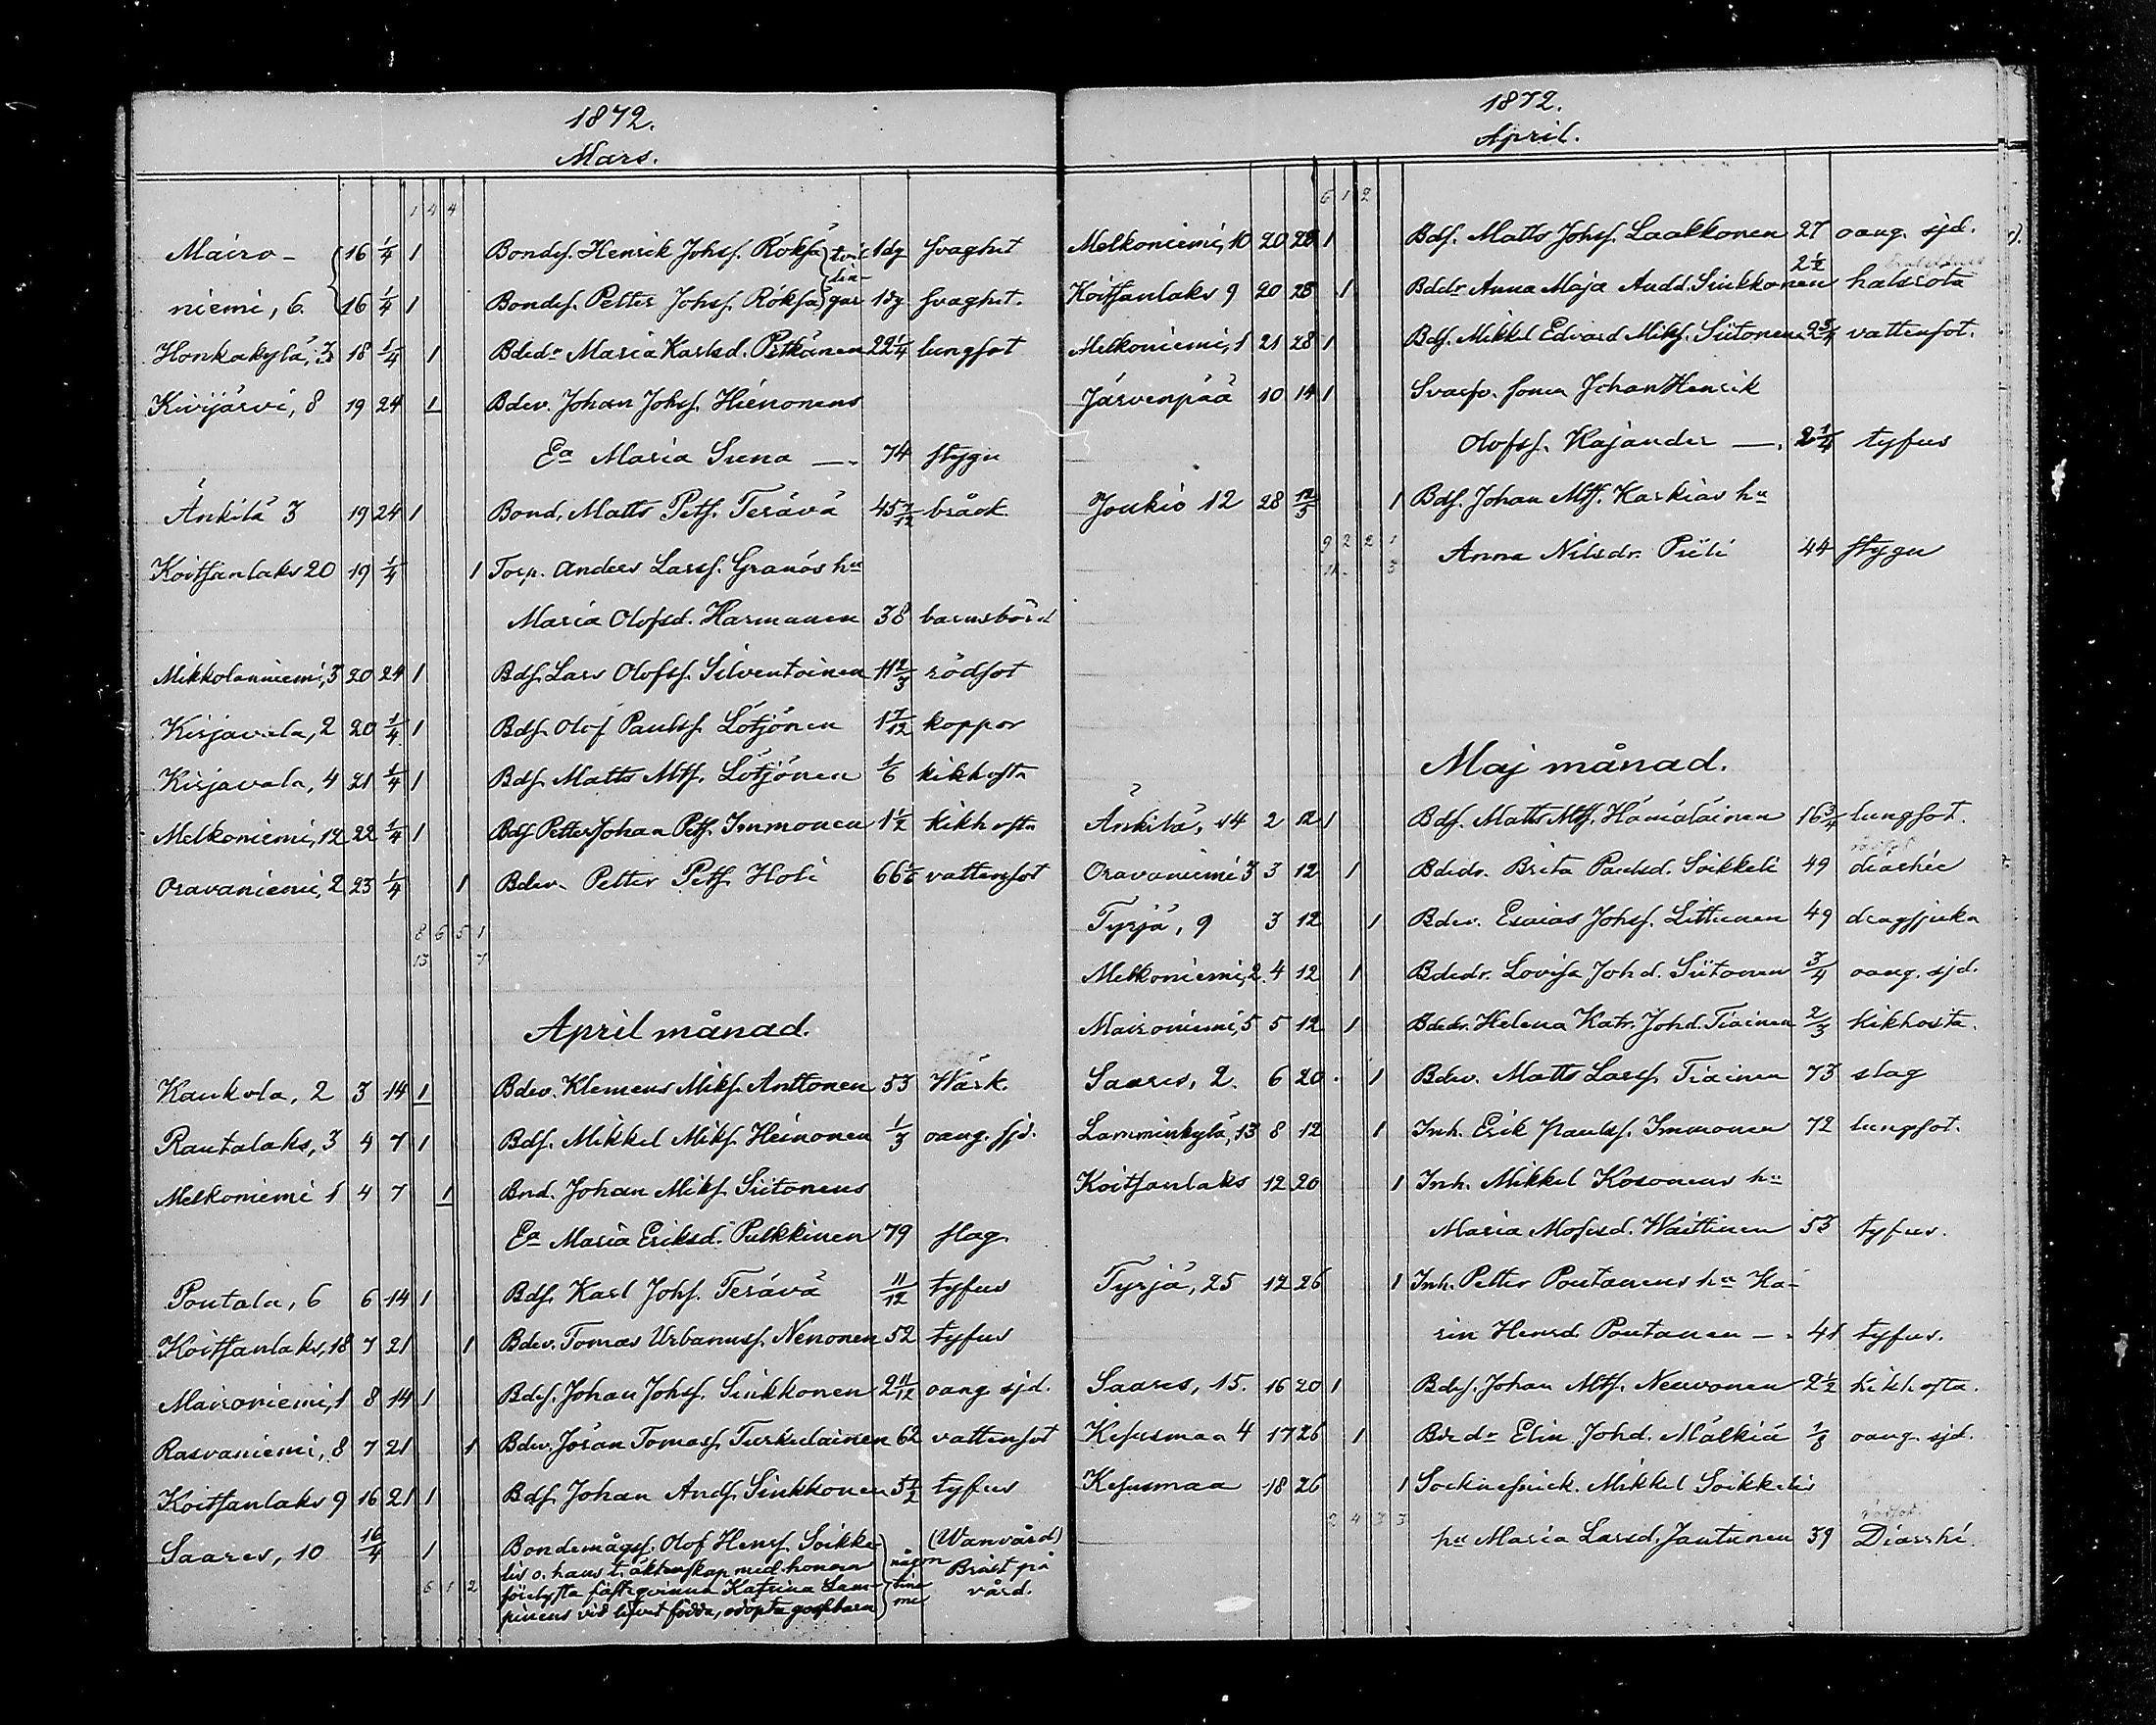 1872.
Mars.
1 4 4
Mairo- 16 1/4 1 Bondes. Henrik Johss. Röksä tvil- 1 dg svaghet
niemi, 6. 16 1/4 1 Bondes. Petter Johss. Röksä lin- gar 1 dg. svaght.
Honkakylä, 18 1/4 1 Bdedr Maria Karlsd. Pitkänen 22 1/4 lungsot
Kivijärvi, 8 19 24 1 Bdev. Johan Johss. Hienonens
Ea Maria Suna —. 74 stygn
Änkilä 3 19 24 1 Bond. Matts Pets. Terävä 45 7/12 bråck
Koitsanlaks 20 19 1/4 1 Torp. Anders Larss. Granös hu
Maria Olofsd. Harmanen 38 barnsbörd
Mikkolanniemi, 3 20 24 1 Bds. Lars Olofss. Silventoinen 11 2/3 rödsot
Kirjavala, 2 20 1/4 1 Bds. Olof Paulss. Lötjönen 1 7/12 koppor
Kirjavala, 4 21 1/4 1 Bds. Matts Mts. Lötjönen 1/6 kikhosta
Melkoniemi, 12 22 1/4 1 Bds Petter Johan Pets. Immonen 1 1/2 kikhosta
Oravaniemi, 2 23 1/4 1 Bdev. Petter Pets. Holi 66 1/2 vattensot
8 6 5 1
13 7
April månad.
Kaukola, 2 3 14 1 Bdev. Klemens Miks. Anttonen 53 Wärk.
Rautalaks, 3 4 7 1 Bds. Mikkel Miks. Heinonen 1/3 oang. sjd.
Melkoniemi 1 4 7 1 Bnd. Johan Miks. Siitonens
Ea Maria Eriksd. Pulkkinen 79 slag.
Poutala, 6 6 14 1 Bds. Karl Johs. Terävä 11/12 tyfus
Koitsanlaks, 18 7 21 1 Bdev. Tomas Urbanuss. Nenonen 52 tyfus
Maironiemi, 1 8 14 1 Bdes. Johan Johss. Sinkkonen 2 11/12 oang. sjd.
Rasvaniemi, 8 7 21 1 Bdev. Jöran Tomass. Turkulainen 62 vattensot
Koitsanlaks 9 16 21 1 Bds. Johan Ands. Sinkkonen 5 1/2 tyfus
Saares, 10 16/4 1 Bondemågs. Olof Henss. Soikke- (Wanvård)
lis o. hans t. äktenskap med honom någon Brist på
förelysta fästeqvinna Katrina Lam- timme vård.
pinens vid lifvet födda, odöpta gossbarn
6 1 2
1872.
April.
6 1 2
Melkoniemi, 10 20 28 1 Bds. Matts Johss. Laakkonen 27 oang. sjd.
Koitsanlaks 9 20 28 1 Bddr Anna Maja Andd. Sinkkonen 2 1/2 halsröta
Melkoniemi, 1 21 28 1 Bds. Mikkel Edvard Miks. Siitonen 2 3/4 vattensot.
Järvenpää 10 14 1 Svarfv. sonen Johan Henrik
Olofss. Kajander —. 2 1/4 tyfus
Joukio 12 28 12/5 1 Bds. Johan Mts. Karkias hu
9 2 2 1
11 3
Anna Nilsdr. Pieli 44 stygn
Maj månad.
Änkilä, 14 2 12 1 Bds. Matts Mts. Hämäläinen 16 3/4 lungsot.
Oravaniemi 3 3 12 1 Bdedr. Brita Paulsd. Soikkeli 49 diarhée
Tyrjä, 9 3 12 1 Bdev. Esaias Johss. Littunen 49 dragsjuka
Melkoniemi, 2. 4 12 1 Bdedr. Lovisa Joh d. Siitonen 3/4 oang. sjd.
Maironiemi, 5 5 12 1 Bdedr. Helena Katr. Johd. Tiainen 2/3 kikhosta.
Saares, 2. 6 20 1 Bdev. Matts Larss. Tiainen 73 slag
Lamminkylä, 13 8 12 1 Inh. Erik Paulss. Immonen 72 lungsot.
Koitsanlaks 12 20 1 Inh. Mikkel Kosonens hu
Maria Mosesd. Waittinen 53 tyfus.
Tyrjä, 25 12 26 1 Inh. Petter Poutanens hu Ka-
rin Hensd. Poutanen —. 41 tyfus.
Saares, 15. 16 20 1 Bdes. Johan Mts. Neuvonen 2 1/2 kikhosta.
Kesusmaa 4 17 26 1 Bdedr Elin Johd. Mälkiä 1/3 oang. sjd.
Kesusmaa 18 26 1 Sockneskrädd. Mikkel Soikkelis
2 4 3 3
hu Maria Larsd. Jantunen 39 Diarrhé.